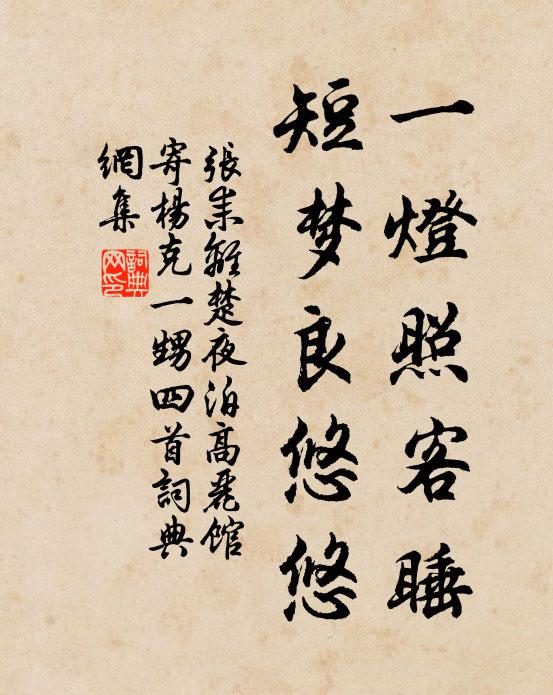 一燈照客睡
短梦良悠悠
張耒離楚夜泊高麗館
寄楊克一甥四首詞典
網集
詞典
网印